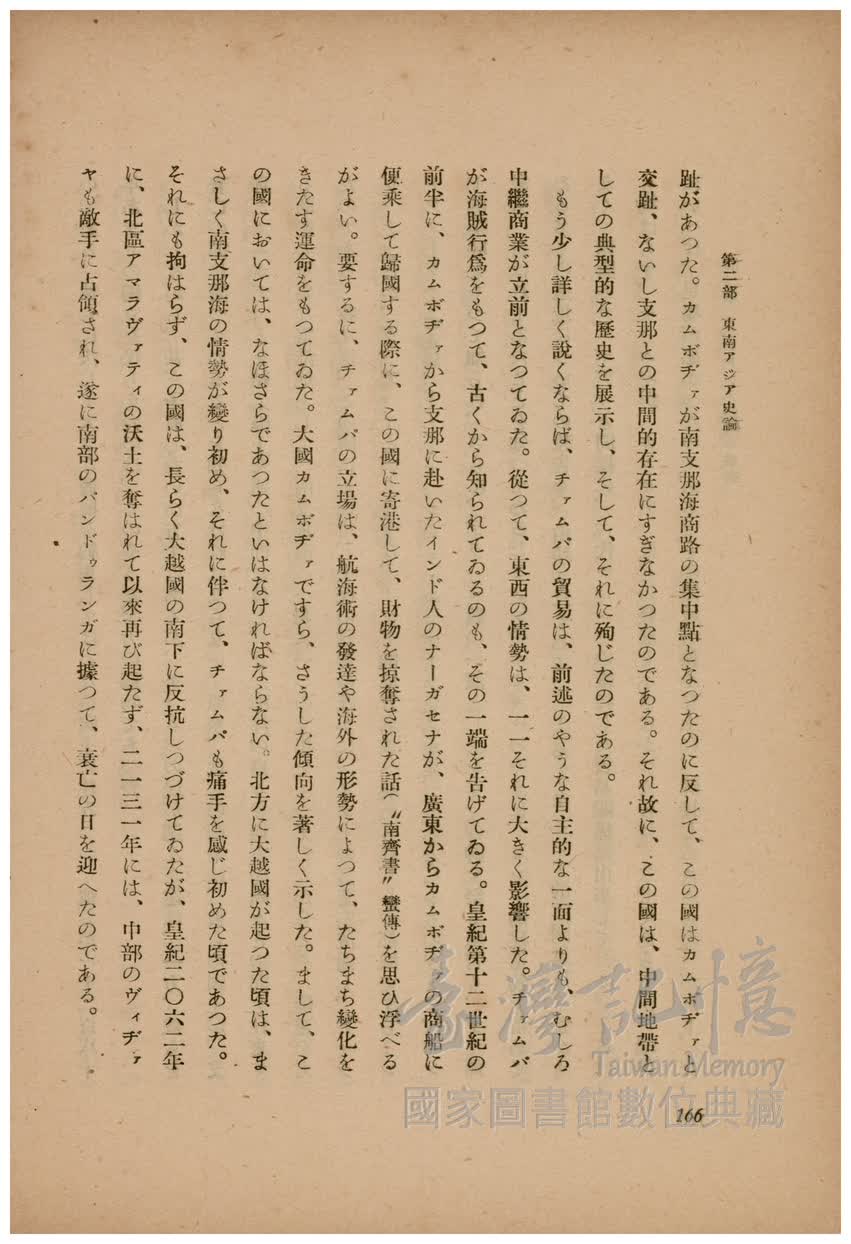 第二部　東南アジア史論
趾があつた。カムボヂァが南支那海商路の集中點となつたのに反して、この國はカムボヂァと
交趾、ないし支那との中間的存在にすぎなかつたのである。それ故に、この國は、中間地帶と
しての典型的な歷史を展示し、そして、それに殉じたのである。
もう少し詳しく說くならば、チァムバの貿易は、前述のやうな自主的な一面よりも、むしろ
中繼商業が立前となつてゐた。從つて、東西の情勢は、一一それに大きく影響した。チァムバ
が海賊行爲をもつて、古くから知られてゐるのも、その一端を吿げてゐる。皇紀第十二世紀の
前半に、カムボヂァから支那に赴いたインド人のナーガセナが、廣東からカムボヂァの商船に
便乘して歸國する際に、この國に寄港して、財物を掠奪された話(〃南齊書〃蠻傳)を思ひ浮べる
がよい。要するに、チァムバの立場は、航海術の發達や海外の形勢によつて、たちまち變化を
きたす運命をもつてゐた。大國カムボヂァですら、さうした傾向を著しく示した。まして、こ
の國においては、なほさらであつたといはなければならない。北方に大越國が起つた頃は、ま
さしく南支那海の情勢が變り初め、それに伴つて、チァムバも痛手を感じ初めた頃であつた。
それにも拘はらず、この國は、長らく大越國の南下に反抗しつづけてゐたが、皇紀二〇六二年
に、北區アマラヴァティの沃土を奪はれて以來再び起たず、二一三一年には、中部のヴィヂァ
ヤも敵手に占領され、遂に南部のパンドゥランガに據つて、衰亡の日を迎へたのである。
166
臺灣記憶
Taiwan Memory
國家圖書館數位典藏